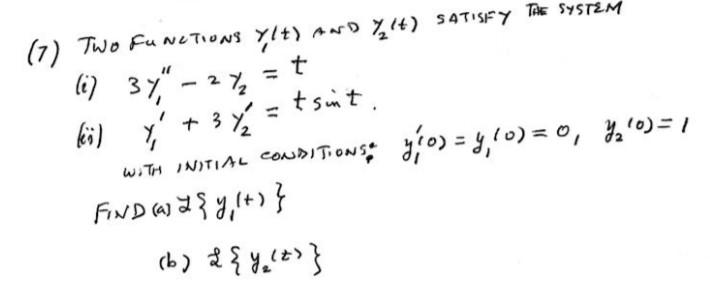 (7) TWO FUNCTIONS y₁(t) AND y₂(t) SATISFY THE SYSTEM
(i) 3y₁'' - 2y₂ = t
(ii) y₁' + 3y₂' = t sin t.
WITH INITIAL CONDITIONS: y₁'(0) = y₁(0) = 0, y₂(0) = 1
FIND (a) ℒ{y₁(t)}
(b) ℒ{y₂(t)}